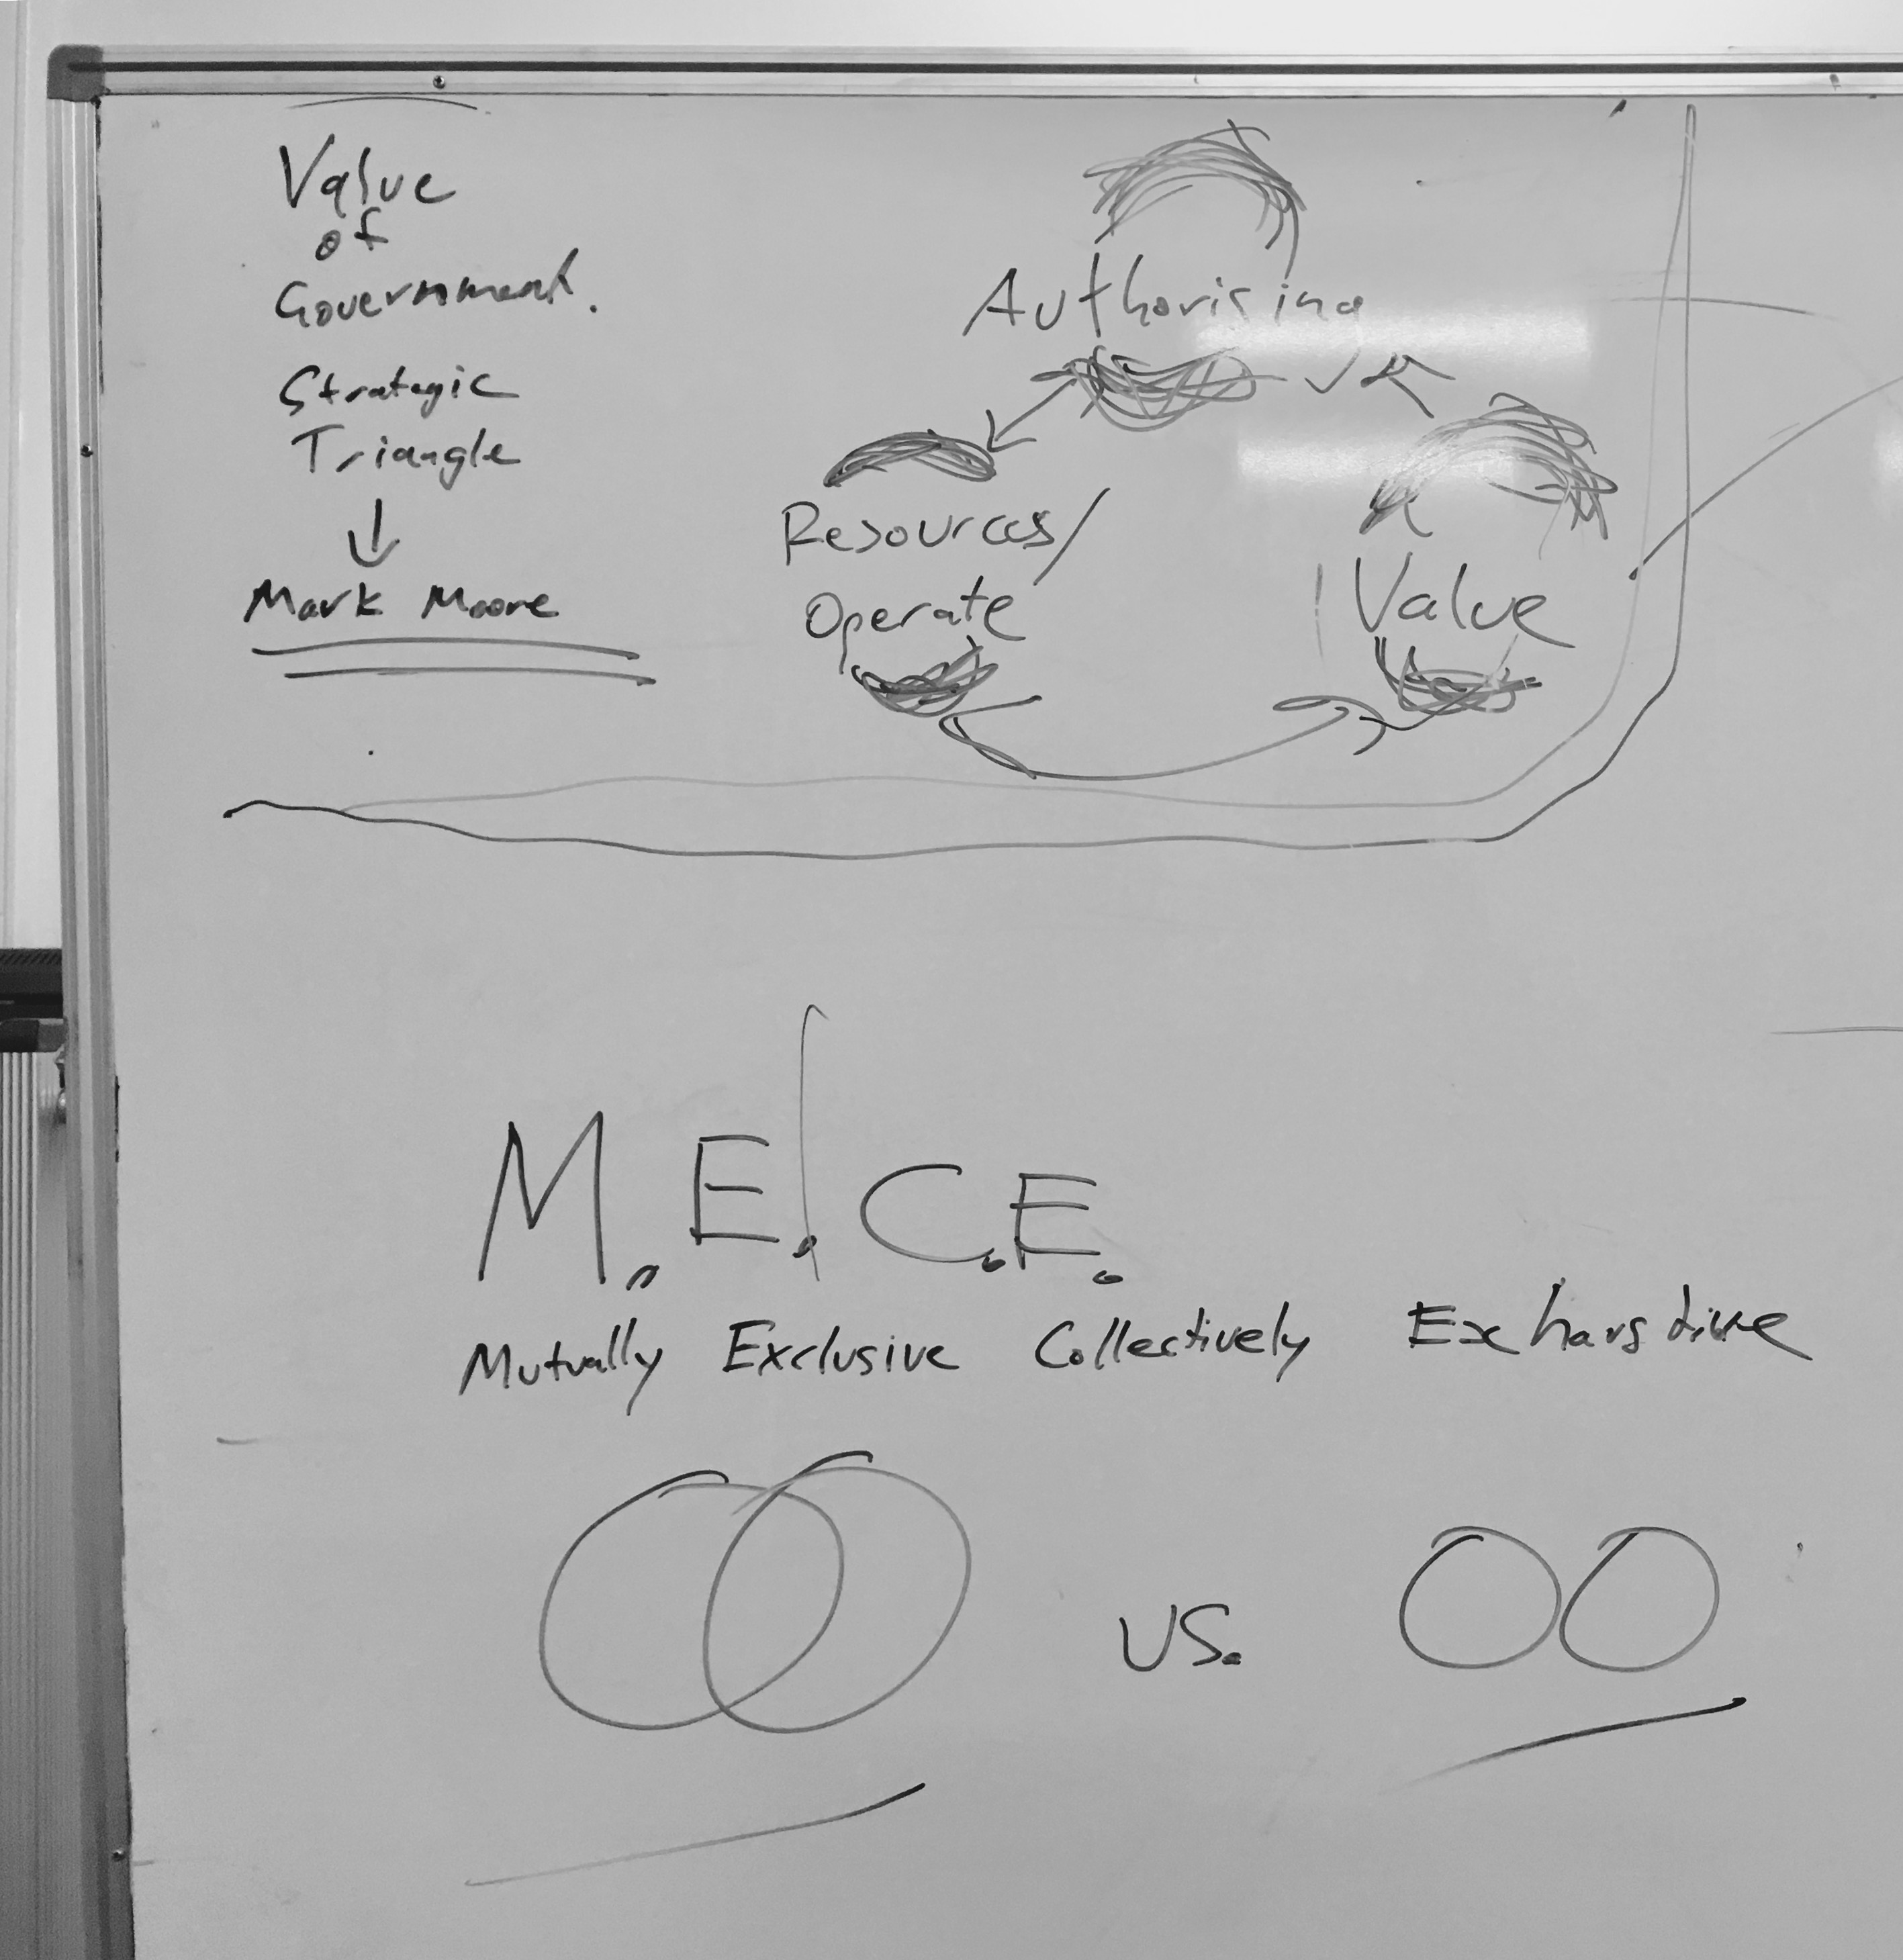 Value
of
Government.
Strategic
Triangle
Mark Moore
Authorising
Resources/
Operate
Value
M.E.C.E.
Mutually Exclusive Collectively Exhaustive
VS.